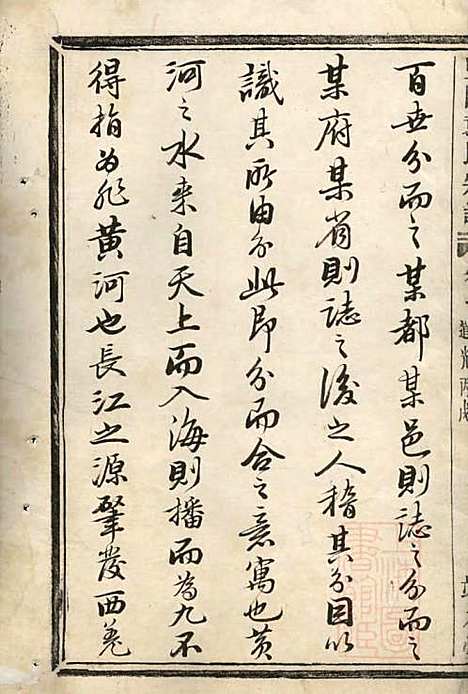 百世分而之某都某邑則誌之分而之
某府某省則誌之後之人稽其分因以
識其所由分此即分而合之意寓也黄
河之水来自天上而入海則播而為九不
得指为非黄河也長江之源肈發西羌